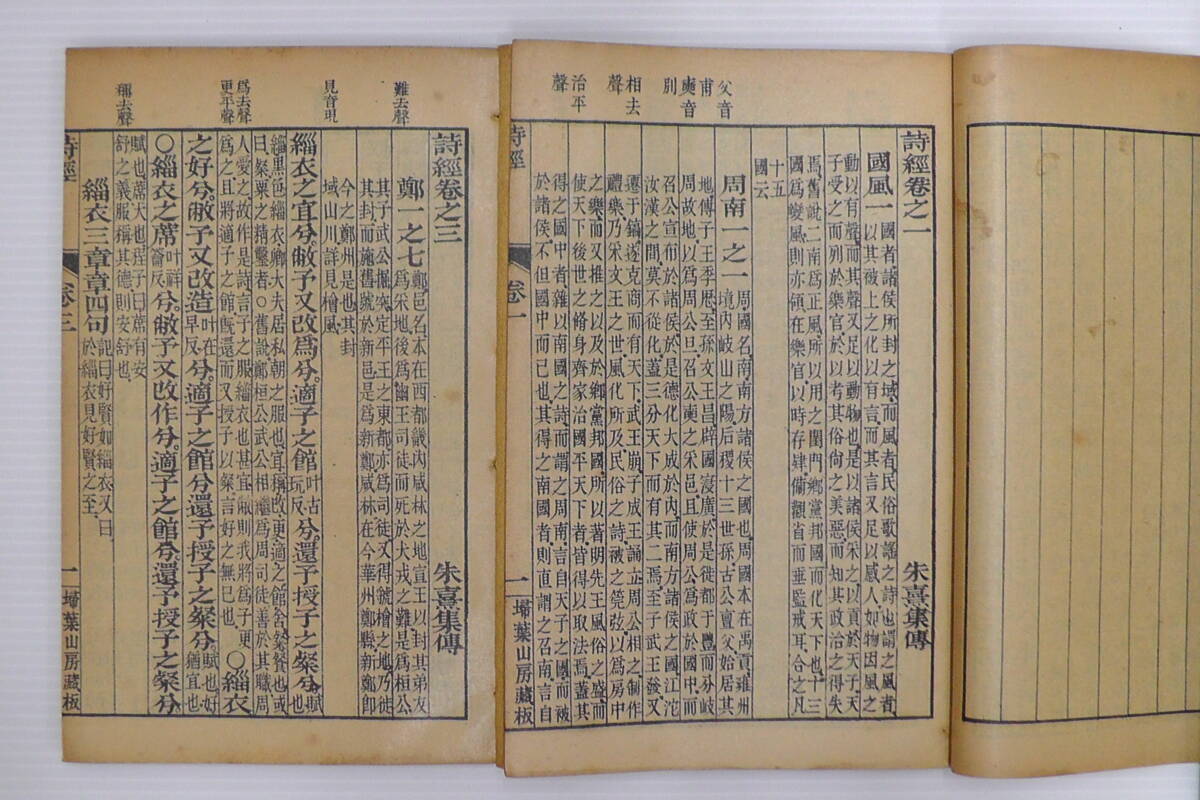 父音
甫
奭音
別
相去
聲
治平
聲
詩經卷之一
朱熹集傳
國風一
國者諸侯所封之域而風者民俗歌謠之詩也謂之風者
以其被上之化以有言而其言又足以感人如物因風之
動以有聲而其聲又足以動物也是以諸侯采之以貢於天子天
子受之而列於樂官於以考其俗尚之美惡而知其政治之得失
焉舊說二南爲正風所以用之閨門鄉黨邦國而化天下也十三
國爲變風則亦領在樂官以時存肄備觀省而垂監戒耳合之凡
十五
國云
周南一之一
周國名南南方諸侯之國也周國本在禹貢雍州
境內岐山之陽后稷十三世孫古公亶父始居其
地傳子王季歷至孫文王昌辟國寖廣於是徙都于豐而分岐
周故地以爲周公旦召公奭之采邑且使周公爲政於國中而
召公宣布於諸侯於是德化大成於內而南方諸侯之國江沱
汝漢之間莫不從化蓋三分天下而有其二焉至子武王發又
遷于鎬遂克商而有天下武王崩子成王誦立周公相之制作
禮樂乃采文王之世風化所及民俗之詩被之筦弦以爲房中
之樂而又推之以及於鄉黨邦國所以著明先王風俗之盛而
使天下後世之脩身齊家治國平天下者皆得以取法焉蓋其
得之國中者雜以南國之詩而謂之周南言自天子之國而被
於諸侯不但國中而已也其得之南國者則直謂之召南言自
詩經
卷一
一
埽葉山房藏板
難去聲
見音現
爲去聲
更平聲
稱去聲
詩經卷之三
朱熹集傳
鄭一之七
鄭邑名本在西都畿內咸林之地宣王以封其弟友
爲采地後爲幽王司徒而死於犬戎之難是爲桓公
其子武公掘突定平王於東都亦爲司徒又得虢檜之地乃徙
其封而施舊號於新邑是爲新鄭咸林在今華州鄭縣新鄭卽
今之鄭州是也其封
域山川詳見檜風
緇衣之宜兮敝予又改爲兮適子之館叶古玩反兮還予授子之粲兮賦也
緇黑色緇衣卿大夫居私朝之服也宜稱改更適之館舍粲餐也或
曰粲粟之精鑿者○舊說鄭桓公武公相繼爲周司徒善於其職周
人愛之故作是詩言子之服緇衣也甚宜敝則我將爲子更
爲之且將適子之館旣還而又授子以粲言好之無已也
○緇衣
之好兮敝予又改造叶在早反兮適子之館兮還予授子之粲兮賦也好猶宜也
○緇衣之蓆叶祥籥反兮敝予又改作兮適子之館兮還予授子之粲兮
賦也蓆大也程子曰蓆有安
舒之義服稱其德則安舒也
緇衣三章章四句
記曰好賢如緇衣又曰
於緇衣見好賢之至
詩經
卷三
一
埽葉山房藏板